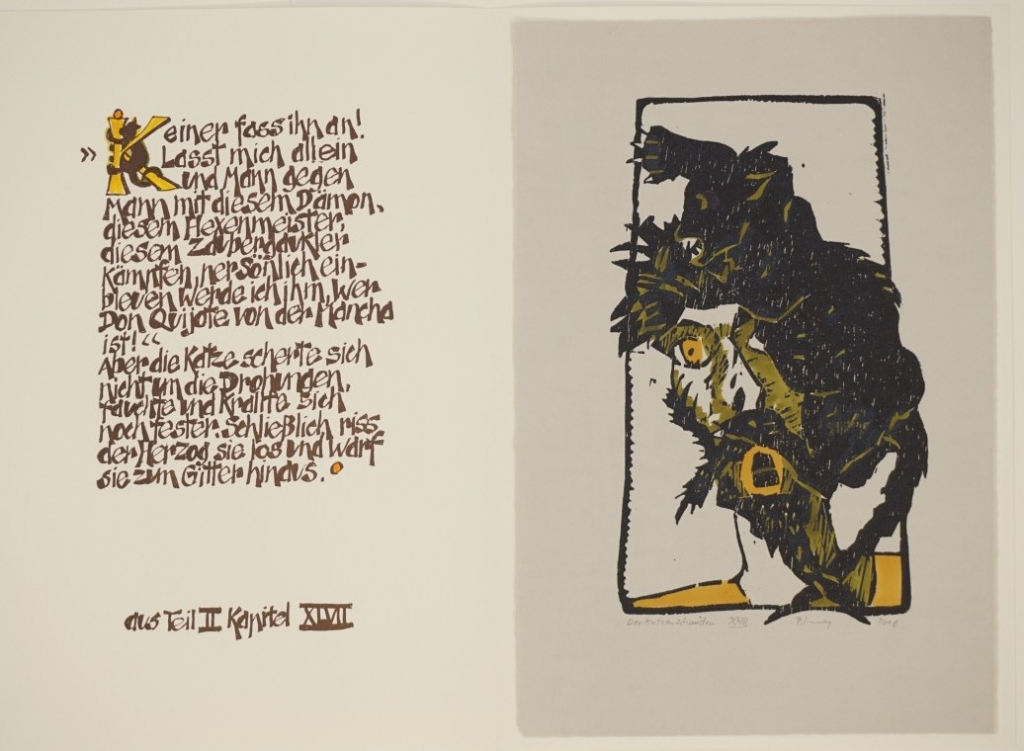 »Keiner fass ihn an!
Lasst mich allein
und Mann gegen
Mann mit diesem Dämon,
diesem Hexenmeister,
diesem Zaubergaukler
kämpfen, persönlich ein-
bleuen werde ich ihm, wer
Don Quijote von der Mancha
ist!«
Aber die Katze scherte sich
nicht um die Drohungen,
fauchte und krallte sich
noch fester. Schließlich riss
der Herzog sie los und warf
sie zum Gitter hinaus.
aus Teil II Kapitel XLVII